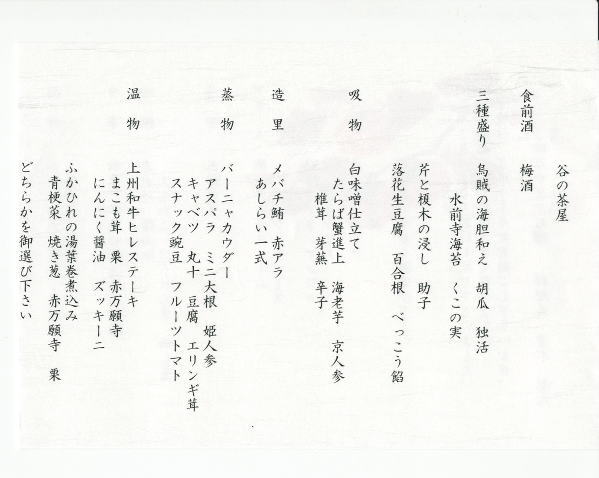 谷の茶屋
食前酒 梅酒
三種盛り 烏賊の海胆和え 胡瓜 独活
水前寺海苔 くこの実
芹と榎木の浸し 助子
落花生豆腐 百合根 べっこう餡
吸物 白味噌仕立て
たらば蟹進上 海老芋 京人参
椎茸 芽蕪 辛子
造里 メバチ鮪 赤アラ
あしらい一式
蒸物 バーニャカウダー
アスパラ ミニ大根 姫人参
キャベツ 丸十 豆腐 エリンギ茸
スナック豌豆 フルーツトマト
温物 上州和牛ヒレステーキ
まこも茸 栗 赤万願寺
にんにく醬油 ズッキーニ
ふかひれの湯葉巻煮込み
青梗菜 焼き葱 赤万願寺 栗
どちらかを御選び下さい